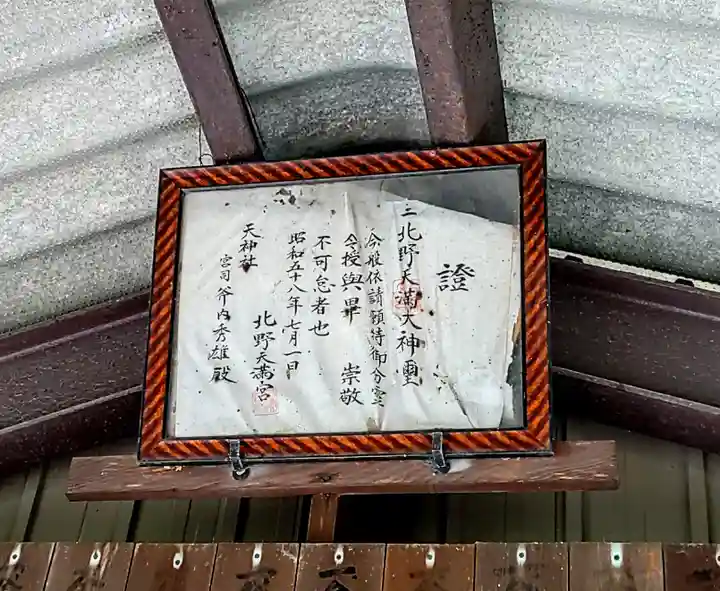 證
一 北野天満大神璽
今般依請願特御分霊
令授與畢 崇敬
不可怠者也
昭和五十八年七月一日
北野天満宮
天神社
宮司 斧内秀雄殿